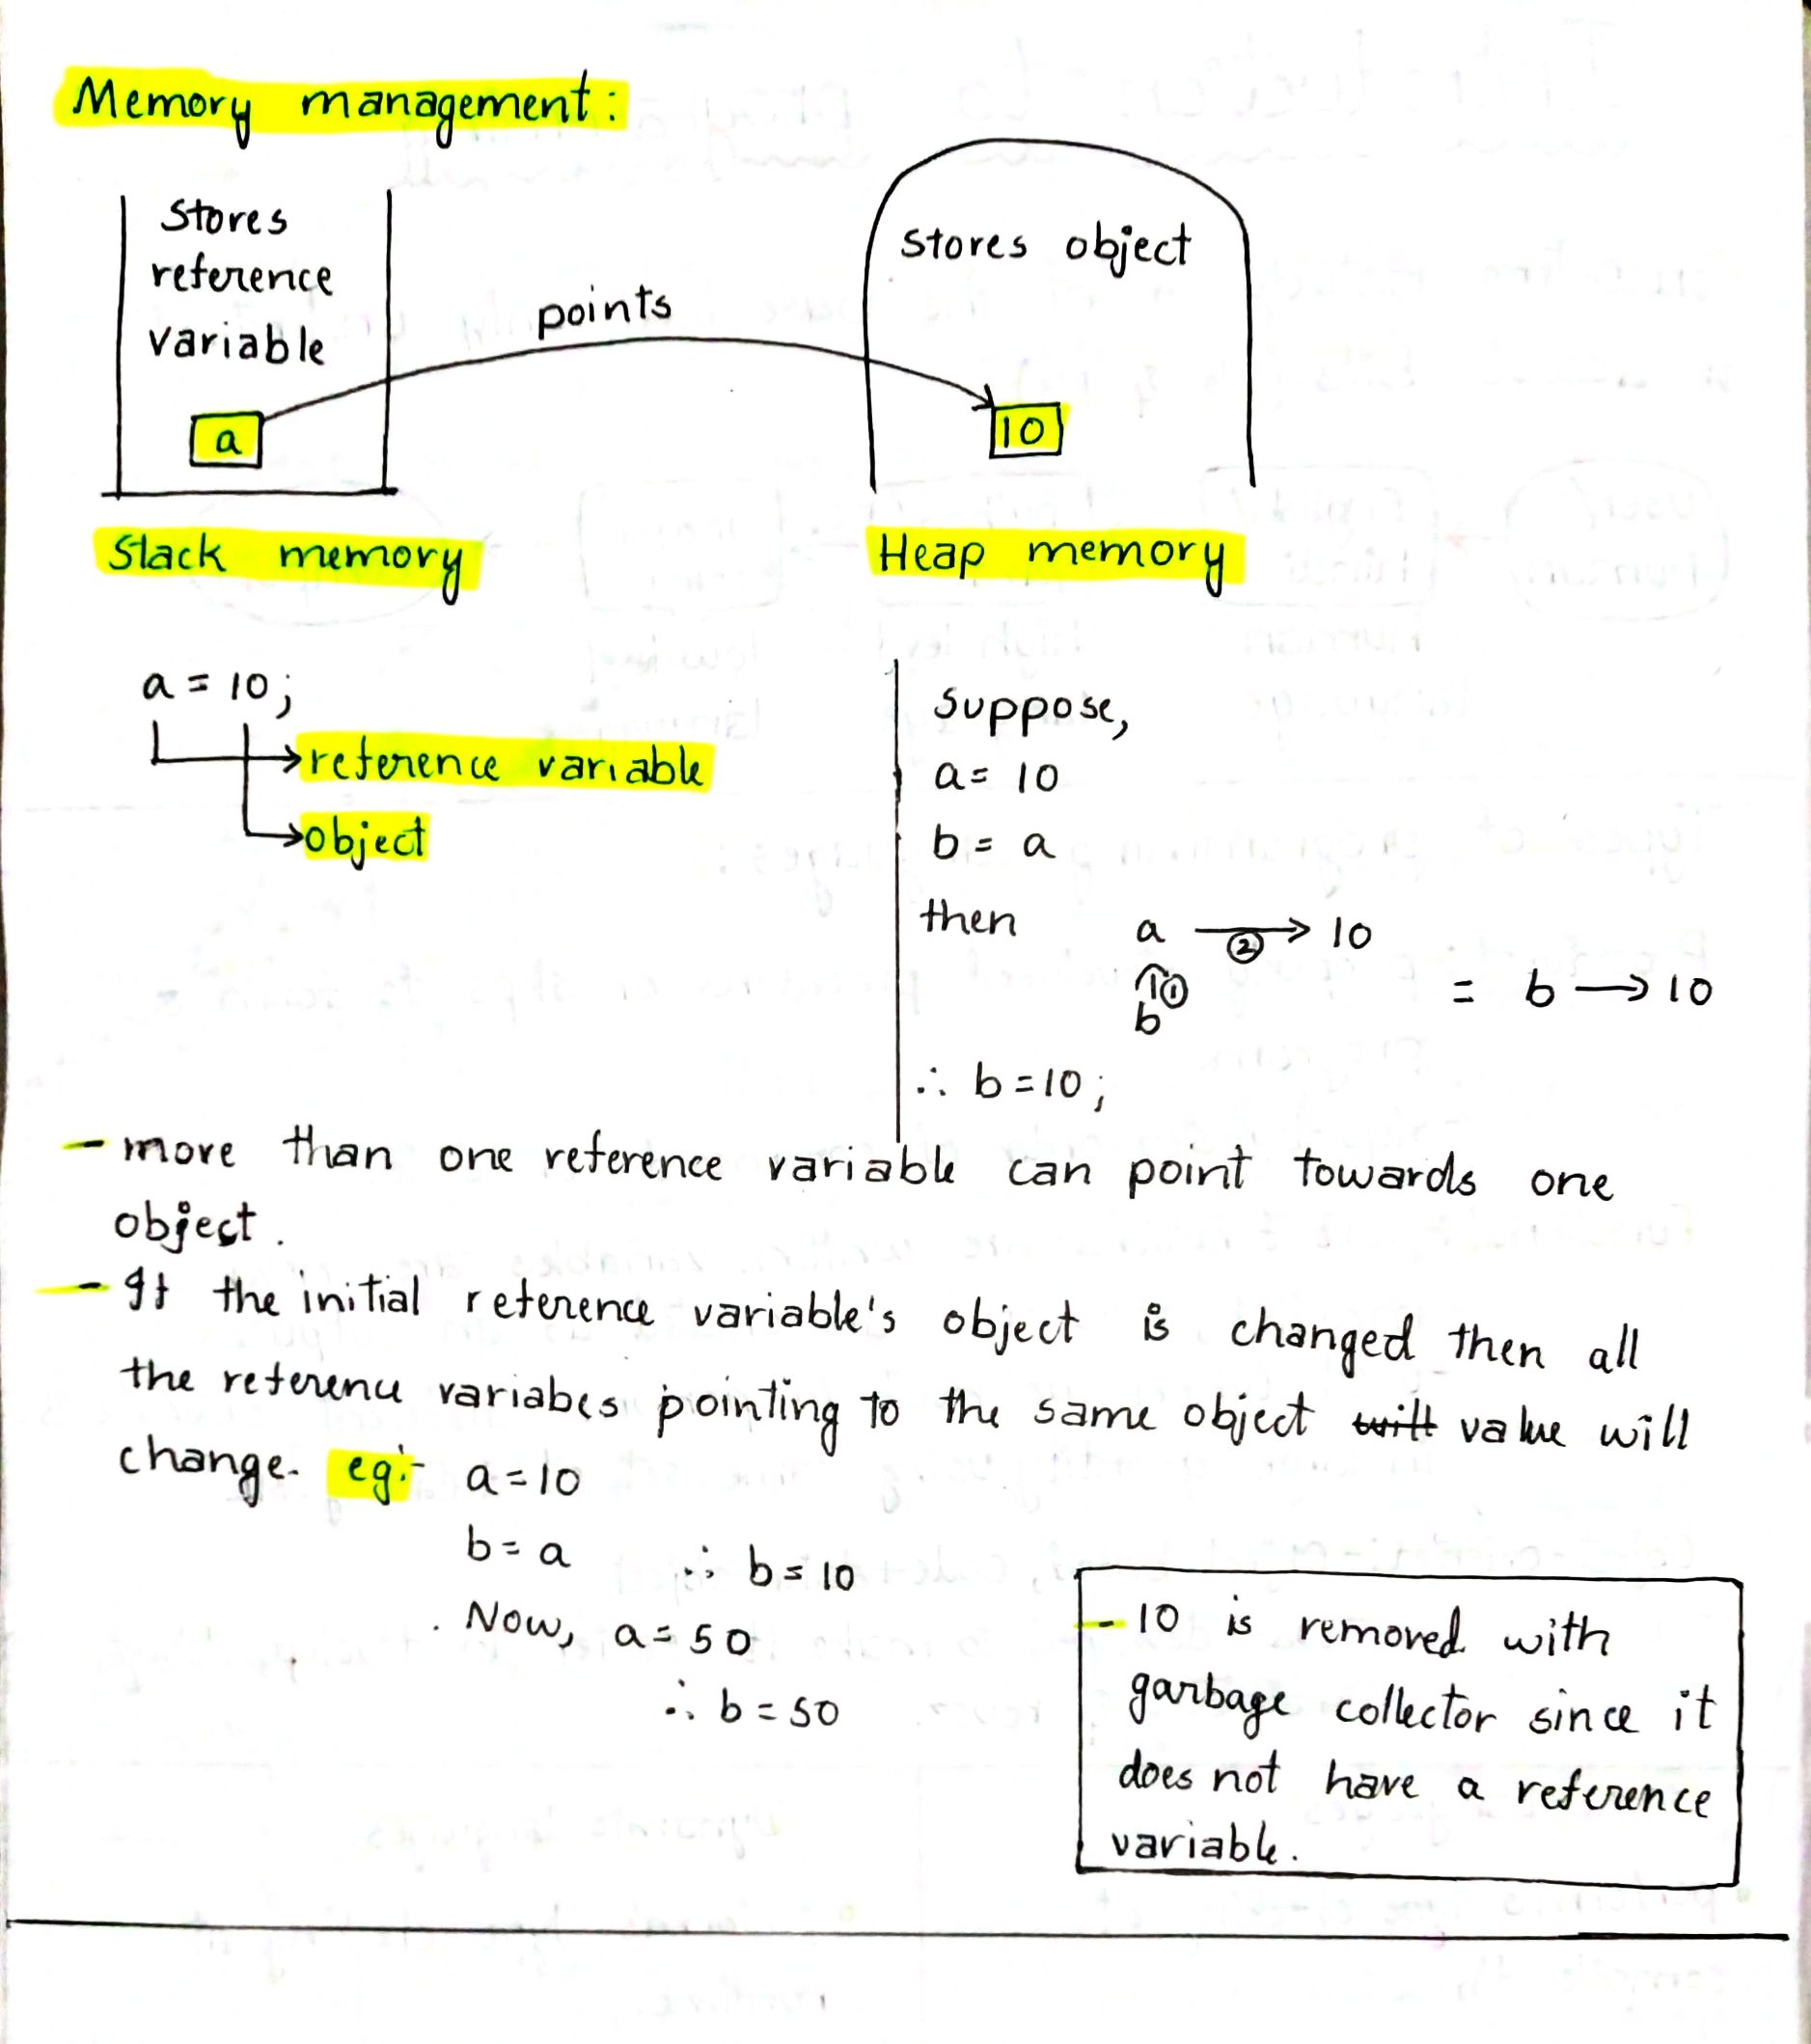 Memory management:
Stores
reference
variable
points
stores object
a
10
Stack memory
Heap memory
a = 10;
reference variable
object
Suppose,
a= 10
b= a
then a ② 10
①
b
= b → 10
∴ b=10;
- more than one reference variable can point towards one
object.
- If the initial reference variable's object is changed then all
the reference variabes pointing to the same object will value will
change. eg:- a=10
b= a ∴ b=10
Now, a=50
∴ b=50
- 10 is removed with
garbage collector since it
does not have a reference
variable.